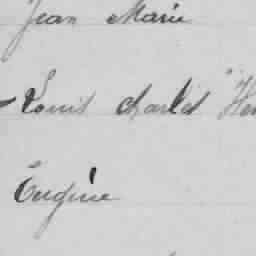 Jean Marie
Louis Charles
Eugène